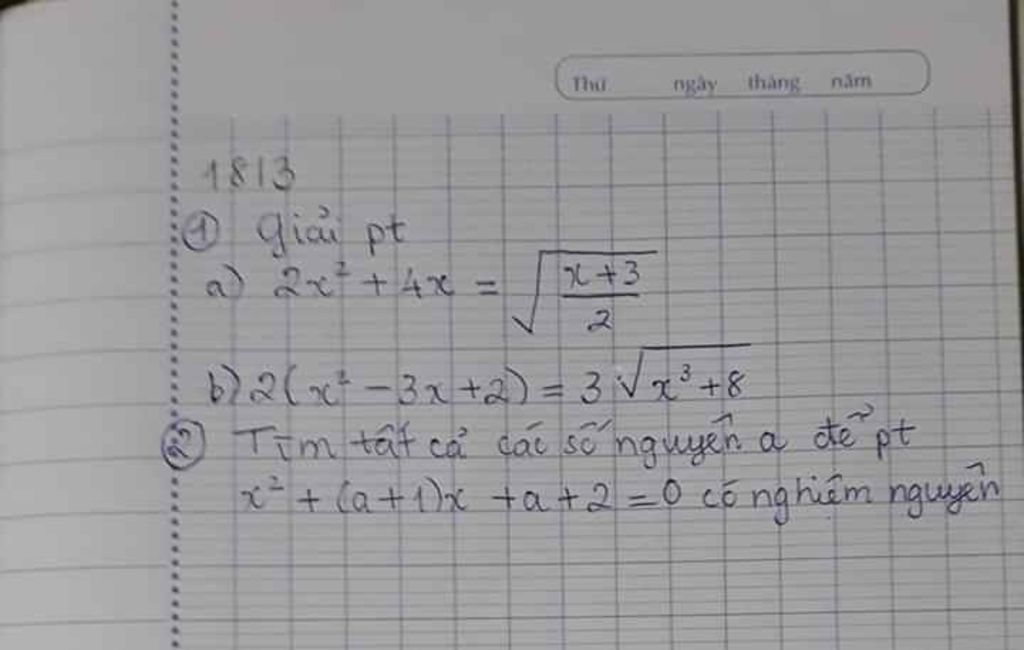 Thứ ngày tháng năm
18/3
① Giải pt
a) 2x² + 4x = √((x+3)/2)
b) 2(x² - 3x + 2) = 3√(x³ + 8)
② Tìm tất cả các số nguyên a để pt
x² + (a+1)x + a + 2 = 0 có nghiệm nguyên